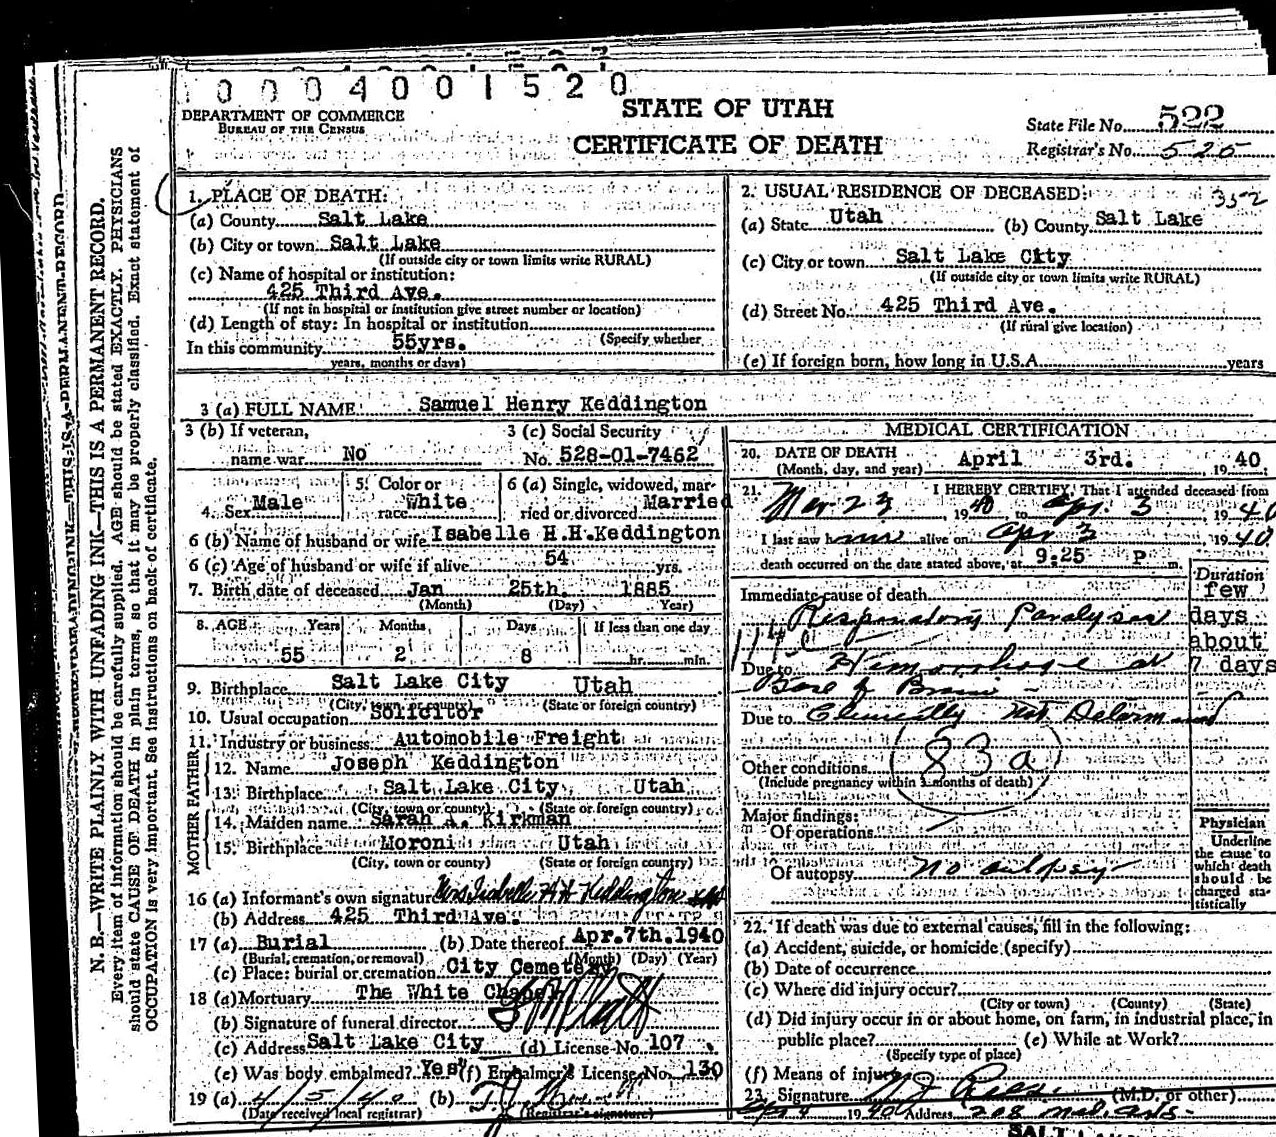 0004001520
DEPARTMENT OF COMMERCE
BUREAU OF THE CENSUS
STATE OF UTAH
CERTIFICATE OF DEATH
State File No. 522
Registrar's No. 525
N. B.—WRITE PLAINLY WITH UNFADING INK—THIS IS A PERMANENT RECORD.
Every item of information should be carefully supplied. AGE should be stated EXACTLY. PHYSICIANS
should state CAUSE OF DEATH in plain terms, so that it may be properly classified. Exact statement of
OCCUPATION is very important. See instructions on back of certificate.
1. PLACE OF DEATH:
(a) County Salt Lake
(b) City or town Salt Lake
(If outside city or town limits write RURAL)
(c) Name of hospital or institution:
425 Third Ave.
(If not in hospital or institution give street number or location)
(d) Length of stay: In hospital or institution
(Specify whether
In this community 55yrs.
years, months or days)
2. USUAL RESIDENCE OF DECEASED: 352
(a) State Utah (b) County Salt Lake
(c) City or town Salt Lake City
(If outside city or town limits write RURAL)
(d) Street No. 425 Third Ave.
(If rural give location)
(e) If foreign born, how long in U.S.A. years
3 (a) FULL NAME Samuel Henry Keddington
3 (b) If veteran, name war No
3 (c) Social Security No. 528-01-7462
4. Sex Male
5. Color or race White
6 (a) Single, widowed, married or divorced Married
6 (b) Name of husband or wife Isabelle H.H.Keddington
6 (c) Age of husband or wife if alive 54 yrs.
7. Birth date of deceased Jan 25th. 1885
(Month) (Day) Year)
8. AGE Years Months Days If less than one day
55 2 8 hr. min.
9. Birthplace Salt Lake City Utah
(City, town, or county) (State or foreign country)
10. Usual occupation Solicitor
11. Industry or business Automobile Freight
FATHER
12. Name Joseph Keddington
13. Birthplace Salt Lake City Utah
(City, town or county) (State or foreign country)
MOTHER
14. Maiden name Sarah A. Kirkman
15. Birthplace Moroni Utah
(City, town or county) (State or foreign country)
16 (a) Informant's own signature Mrs Isabelle H H Keddington
(b) Address 425 Third Ave.
17 (a) Burial (b) Date thereof Apr.7th.1940
(Burial, cremation, or removal) (Month) (Day) (Year)
(c) Place: burial or cremation City Cemetery
18 (a) Mortuary The White Chapel
(b) Signature of funeral director
(c) Address Salt Lake City (d) License No. 107
(e) Was body embalmed? Yes (f) Embalmer's License No. 130
19 (a) 4/5/40 (b)
(Date received local registrar) (Registrar's signature)
MEDICAL CERTIFICATION
20. DATE OF DEATH
(Month, day, and year) April 3rd. 1940
21. I HEREBY CERTIFY, That I attended deceased from
Mar 23 1940 to Apr. 3 1940
I last saw him alive on Apr 3 1940
death occurred on the date stated above, at 9:25 P m.
Duration
Immediate cause of death few
Respiratory Paralysis days
about
Due to Hemorrhage at 7 days
Base of Brain
Due to Clinically Not Determined
83a
Other conditions
(Include pregnancy within 3 months of death)
Major findings:
Of operations
Of autopsy No autopsy
Physician
Underline
the cause to
which death
should be
charged sta-
tistically
22. If death was due to external causes, fill in the following:
(a) Accident, suicide, or homicide (specify)
(b) Date of occurrence
(c) Where did injury occur?
(City or town) (County) (State)
(d) Did injury occur in or about home, on farm, in industrial place, in
public place? (e) While at Work?
(Specify type of place)
(f) Means of injury
23. Signature (M.D. or other)
Apr 4 1940 Address 208 Med. Arts